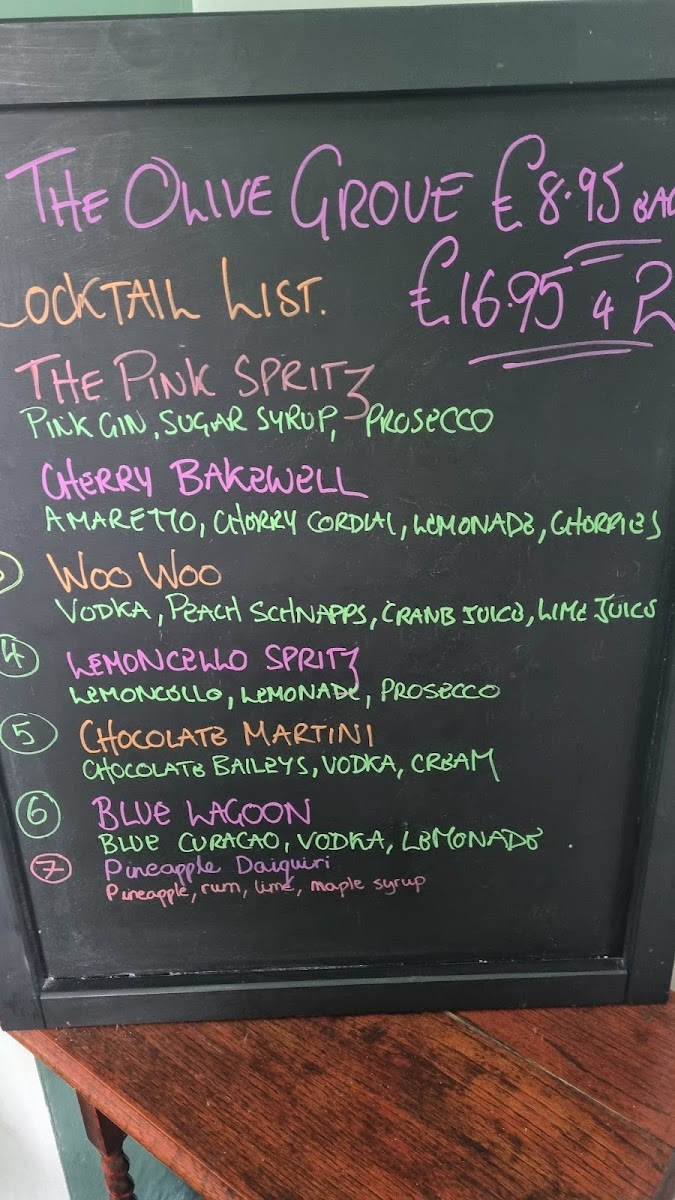 THE OLIVE GROVE £8.95
COCKTAIL LIST. £16.95 4 2
THE PINK SPRITZ
PINK GIN, SUGAR SYRUP, PROSECCO
CHERRY BAKEWELL
AMARETTO, CHERRY CORDIAL, LEMONADE, CHERRIES
WOO WOO
VODKA, PEACH SCHNAPPS, CRANB JUICE, LIME JUICE
4 LEMONCELLO SPRITZ
LEMONCELLO, LEMONADE, PROSECCO
5 CHOCOLATE MARTINI
CHOCOLATE BAILEYS, VODKA, CREAM
6 BLUE LAGOON
BLUE CURACAO, VODKA, LEMONADE
7 Pineapple Daiquiri
Pineapple, rum, lime, maple syrup